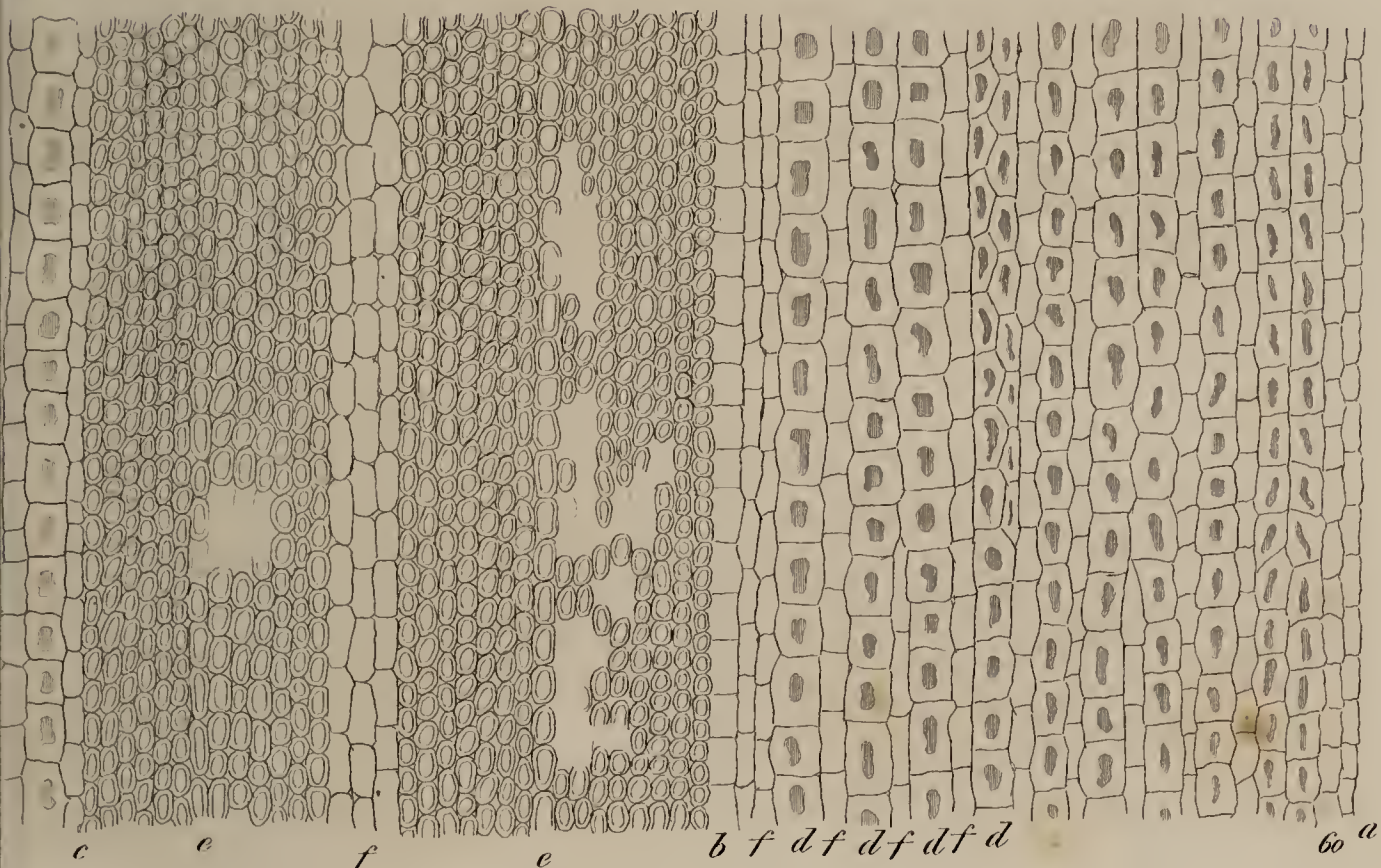 c e f e b f d f d f d f d 60 a